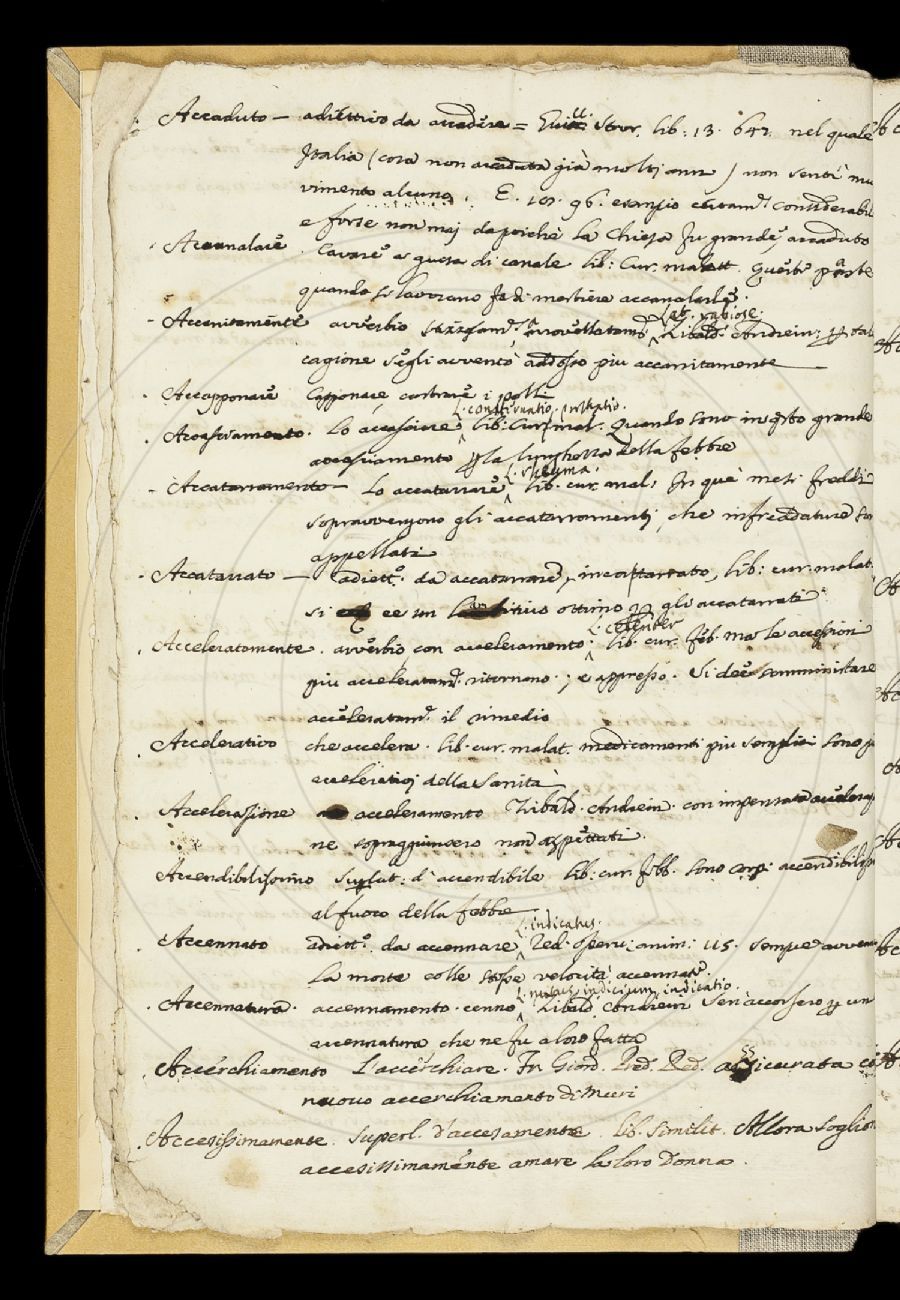 Accaduto — adiettivo da accadere = Guicc. Stor. lib: 13. 642. nel quale
Italia (cosa non accaduta già molti anni) non sentì mo
vimento alcuno. E. 101. 96. esempio certam.te considerabil
e forse non mai dapoichè la Chiesa fu grande, accaduto
Accanalare . Cavare a guisa di canale lib: Cur. malatt. Queste piaste
quando si lavorano fa di mestiere accanalarle.
L. rabiose.
Accanitamente avverbio Zibald. Andrein:
cagione segli avventò addosso piu accanitamente
Accapponare Capponare, castrare i polli
L. constipatio.
Accasciamento. Lo accasciare lib: Cur: mal: Quando sono in q.sto grande
accasciamento p la lunghezza della febbre
Accatarramento — Lo accatarrare lib. cur. mal: In que' mesi freddi
sopravvengono gli accatarramenti, che infreddature son
appellati
Accatarrato — adiett.o da accatarrare, lib: cur. malat.
si ee un ottimo p gli accatarrati
L. celeriter
Acceleratamente . avverbio con acceleramento: lib. cur. feb. ma le accessioni
piu acceleratam.te ritornano.; e appresso. Si dee somministrare
acceleratam.te il rimedio
Accelerativo che accelera. lib. cur. malat. medicamenti piu semplici sono
accelerativi della sanità
Accelerazione acceleramento Zibald. Andrein. con impensata
ne sopraggiunsero non aspettati.
Accendibilissimo Suplat: d'accendibile lib: cur. febb. sono corpi accendibilissi
al fuoco della febbre
L. indicatus.
Accennato adiett.o da accennare Red. Operu: anim: 115. sempre avven
la morte colle stesse velocità accennate.
L. nutus, indicium, indicatio.
Accennatura. accennamento. cenno Zibald. Andrein Sen'accorsero p un
accennatura che ne fu a loro fatta
Accerchiamento L'accerchiare. Fr. Giord. Pred. Red. assicurata co
nuovo accerchiamento di Muri
Accesissimamente. superl. d'accesamente. lib. Similit. Allora soglion
accesissimamente amare la loro Donna.